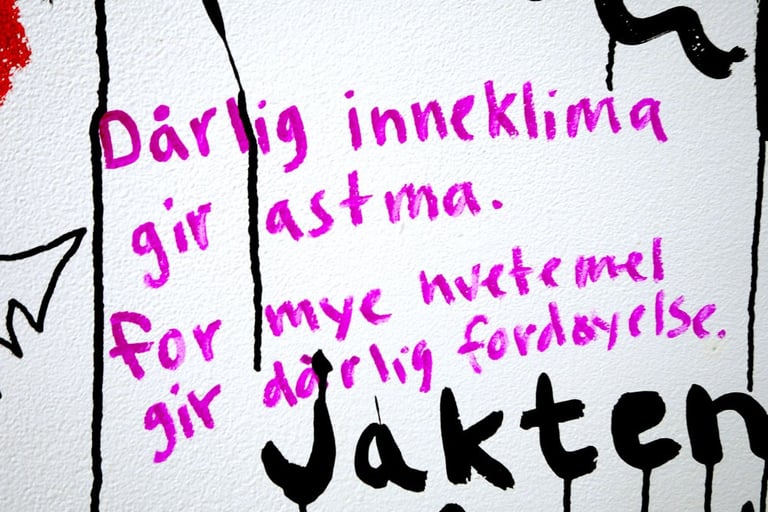 Dårlig inneklima
gir astma.
for mye hvetemel
gir dårlig fordøyelse.
Jakten